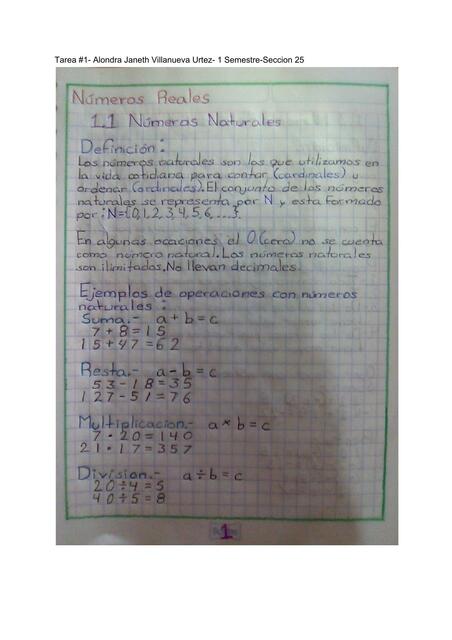 Tarea #1- Alondra Janeth Villanueva Urtez- 1 Semestre-Seccion 25
Números Reales
1.1 Números Naturales
Definición:
Los números naturales son los que utilizamos en
la vida cotidiana para contar (cardinales) u
ordenar (ordinales). El conjunto de los números
naturales se representa por N y esta formado
por: N={0,1,2,3,4,5,6,...}.
En algunas ocaciones el 0 (cero) no se cuenta
como número natural. Los números naturales
son ilimitados. No llevan decimales.
Ejemplos de operaciones con números
naturales:
Suma.- a + b = c
7 + 8 = 15
15 + 47 = 62
Resta.- a - b = c
53 - 18 = 35
127 - 51 = 76
Multiplicacion.- a × b = c
7 · 20 = 140
21 · 17 = 357
Division.- a ÷ b = c
20 ÷ 4 = 5
40 ÷ 5 = 8
1